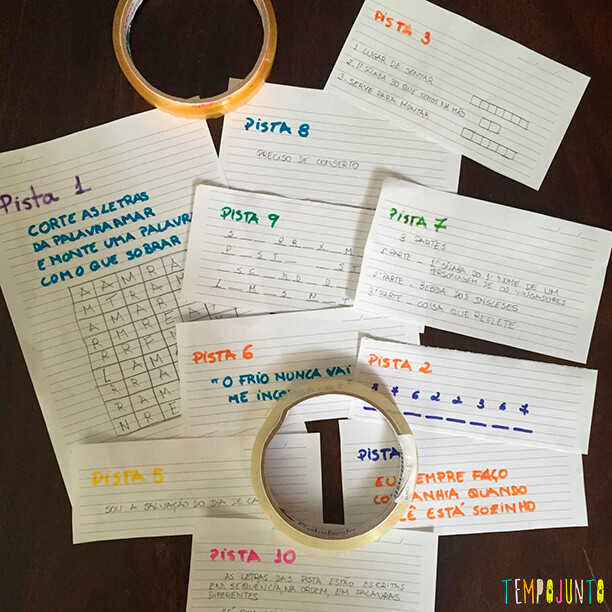 Pista 3
1. LUGAR DE SENTAR
2. 1ª SÍLABA DO QUE TEMOS NA MÃO
3. SERVE PARA MONTAR
Pista 8
PRECISO DE CONSERTO
Pista 1
CORTE AS LETRAS
DA PALAVRA ARMAR
E MONTE UMA PALAVRA
COM O QUE SOBRAR
A A M R A
M T R A
A M A R
R M R E A T
R R E
L A M
R R A
R A M
N R E
Pista 9
Pista 7
3 PARTES
1ª PARTE - 1ª SÍLABA DO 1º NOME DE UM
PERSONAGEM DE OS VINGADORES
2ª PARTE - BEBIDA DOS INGLESES
3ª PARTE - COISA QUE REFLETE
Pista 6
"O FRIO NUNCA VAI
ME
Pista 2
7 6 2 2 3 6 7
Pista 5
SOU A SALVAÇÃO DO DIA DE
PISTA
EU SEMPRE FAÇO
COMPANHIA QUANDO
VOCÊ ESTÁ SOZINHO
Pista 10
AS LETRAS DAS PISTA ESTÃO ESCRITAS
EM SEQUÊNCIA NA ORDEM, EM PALAVRAS
DIFERENTES
TEMPOJUNTO